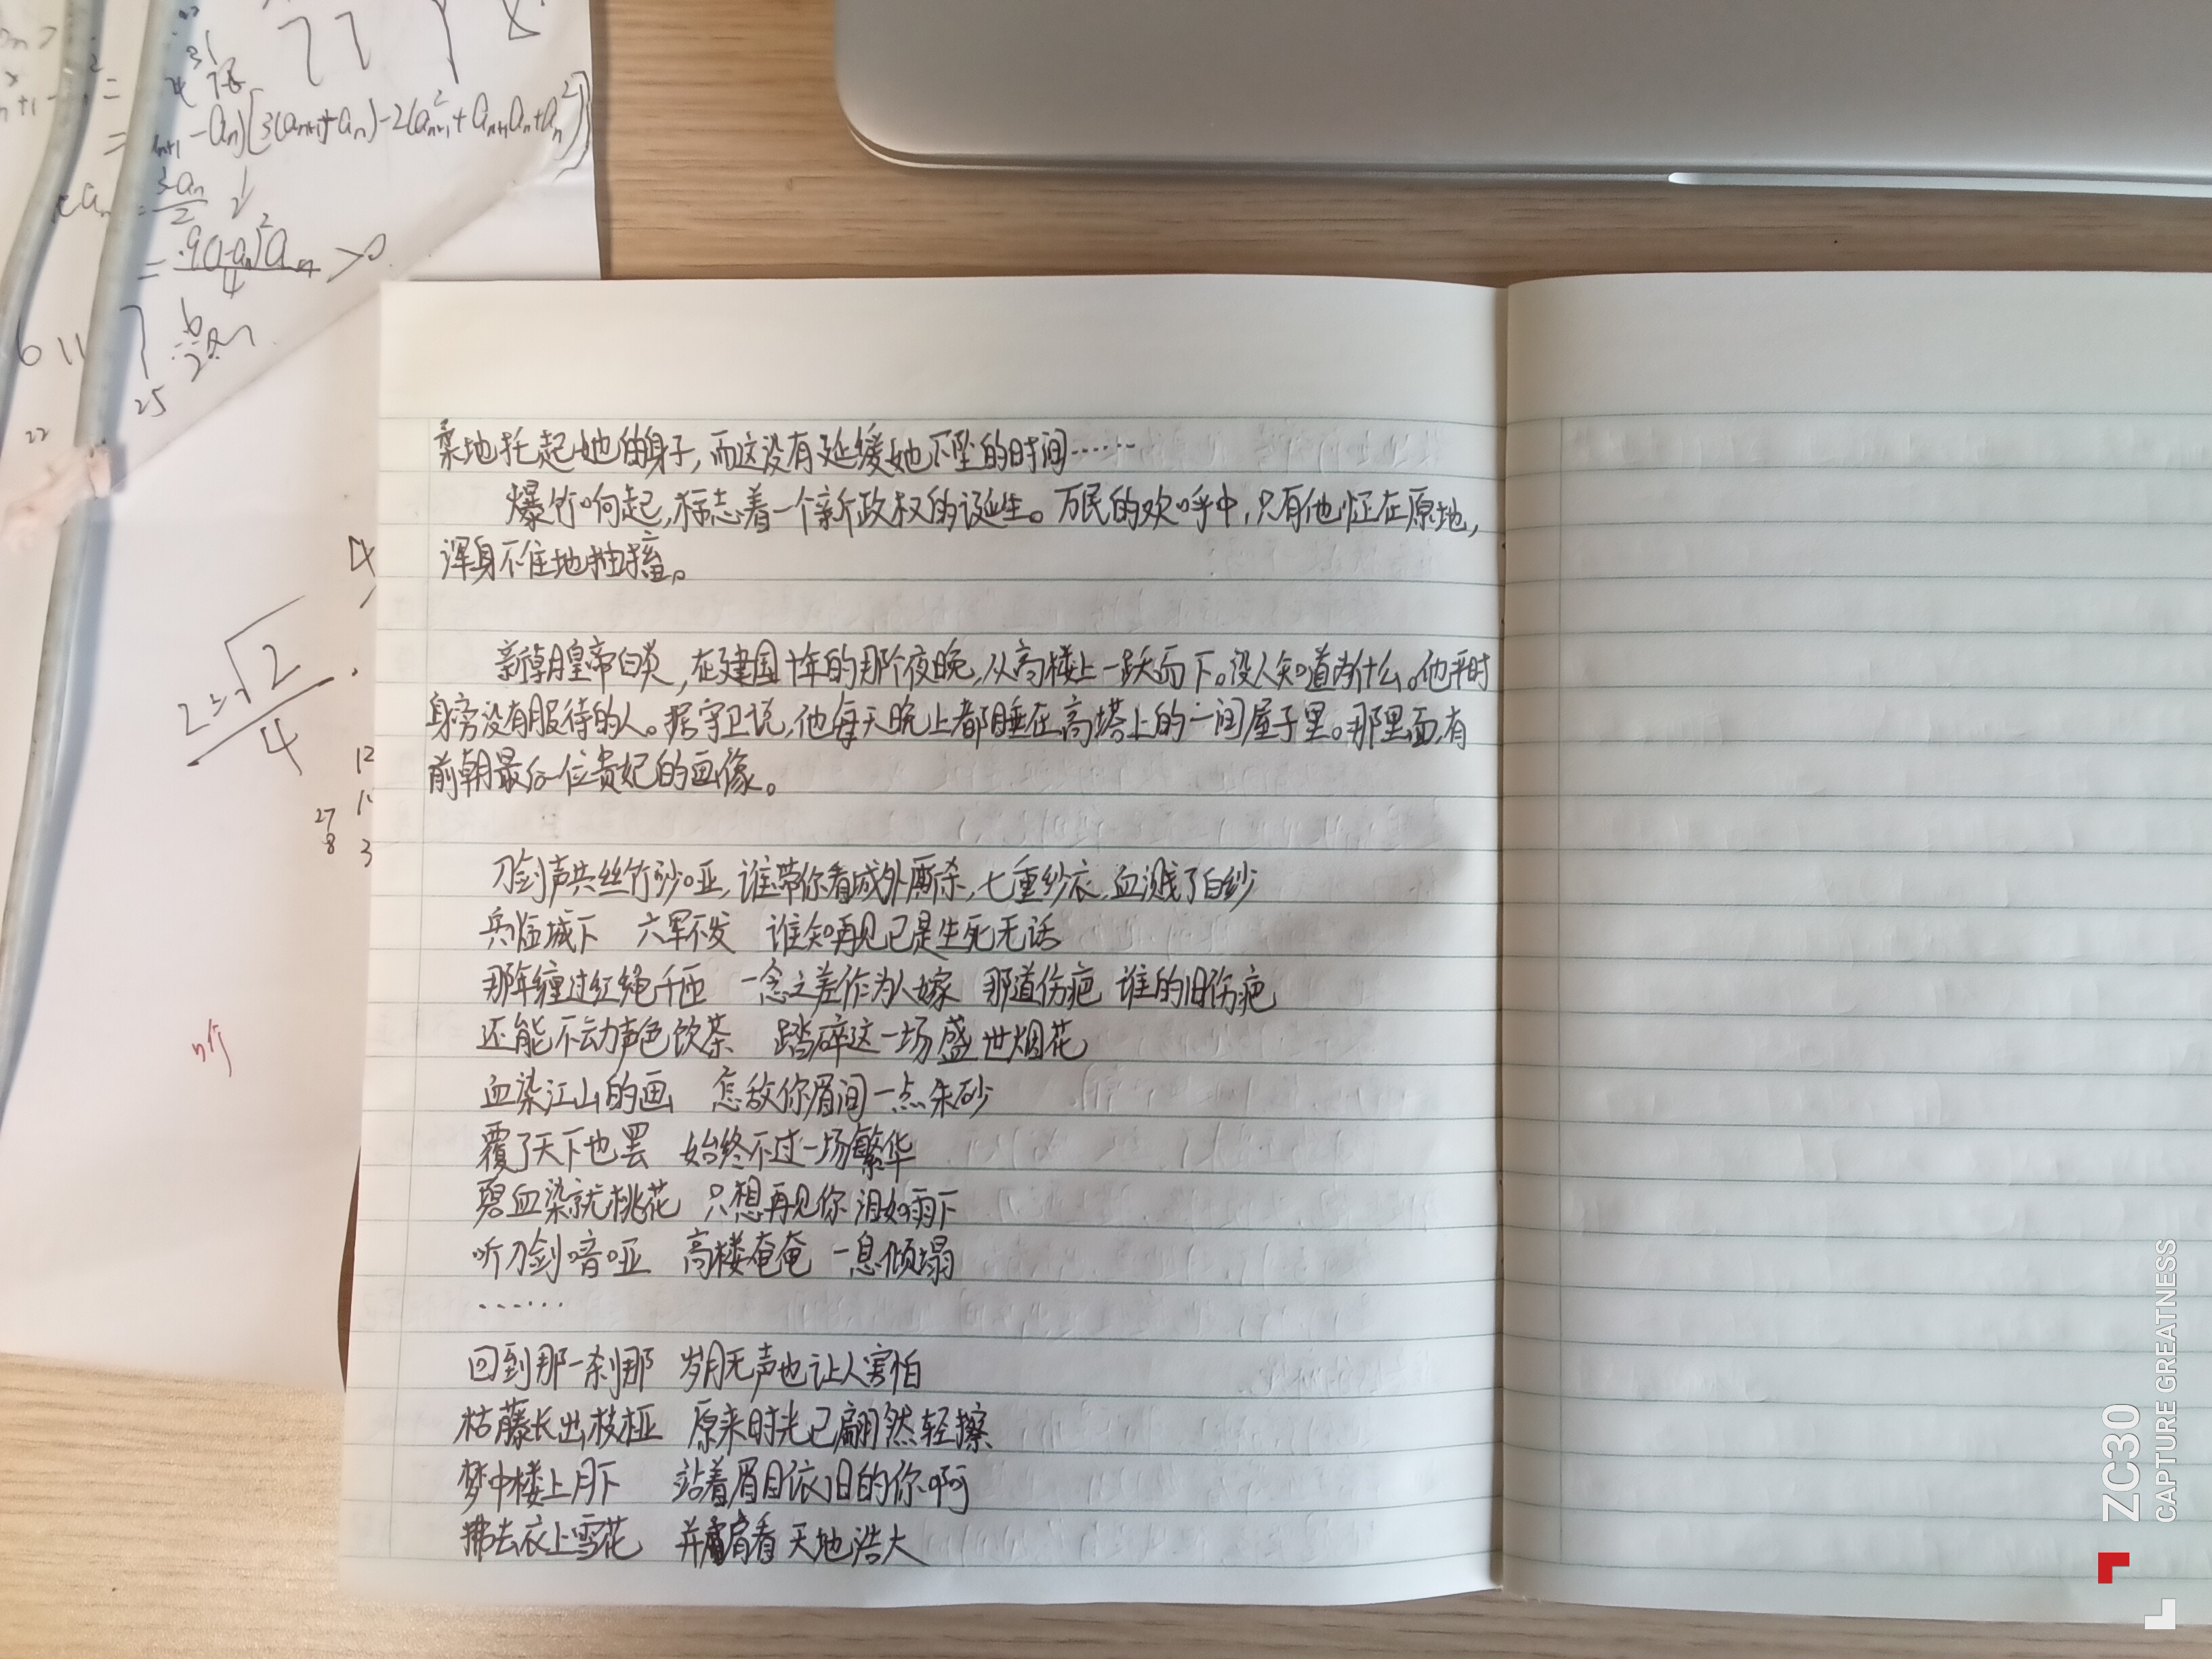 柔地托起她的身子，而这没有延缓她下坠的时间……
爆竹响起，标志着一个新政权的诞生。万民的欢呼中，只有他怔在原地，
浑身不住地抽搐。
新朝皇帝白炎，在建国十年的那个夜晚，从高楼上一跃而下。没人知道为什么。他平时
身旁没有服侍的人。据守卫说，他每天晚上都睡在高塔上的一间屋子里。那里面，有
前朝最后一位贵妃的画像。
刀剑声共丝竹沙哑，谁带你看城外厮杀，七重纱衣，血溅了白纱
兵临城下 六军不发 谁知再见已是生死无话
那年缠过红绳千匝 一念之差作为人嫁 那道伤疤 谁的旧伤疤
还能不动声色饮茶 踏碎这一场盛世烟花
血染江山的画 怎敌你眉间一点朱砂
覆了天下也罢 始终不过一场繁华
碧血染就桃花 只想再见你 泪如雨下
听刀剑喑哑 高楼奄奄 一息倾塌
……
回到那一刹那 岁月无声也让人害怕
枯藤长出枝桠 原来时光已翩然轻擦
梦中楼上月下 站着眉目依旧的你啊
拂去衣上雪花 并肩看 天地浩大
=
= -an)[3(an+1+an)-2(an+1²+an+1an+an²)]
3an
2
= 9(1-an)²an
4
>0
6 11
25
22
√2
4
4
12
27
8 3
n个
ZC30
CAPTURE GREATNESS